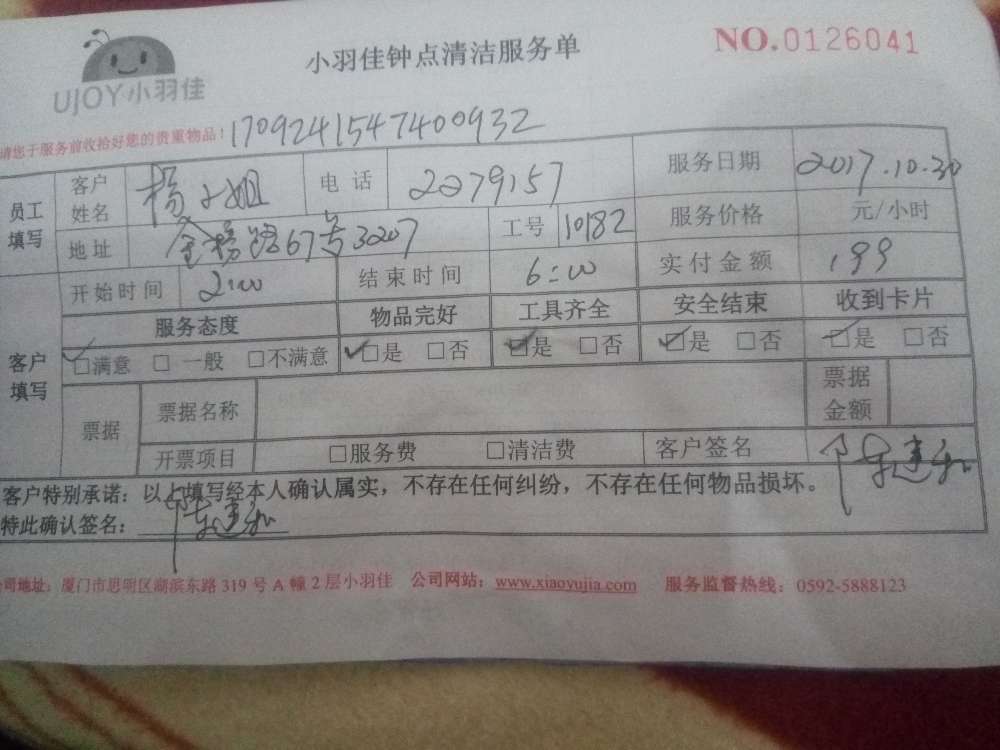 UJOY小羽佳
小羽佳钟点清洁服务单
NO.0126041
请您于服务前收拾好您的贵重物品！ 1709241547400932
员工填写 客户姓名 杨小姐 电话 2279157 服务日期 2017.10.30
地址 金榜路67号3207 工号 10182 服务价格 元/小时
开始时间 2:00 结束时间 6:00 实付金额 199
客户填写 服务态度 物品完好 工具齐全 安全结束 收到卡片
✓□满意 □一般 □不满意 ✓□是 □否 ✓□是 □否 ✓□是 □否 ✓□是 □否
票据 票据名称 票据金额
开票项目 □服务费 □清洁费 客户签名 陈建和
客户特别承诺：以上填写经本人确认属实，不存在任何纠纷，不存在任何物品损坏。
特此确认签名：陈建和
公司地址：厦门市思明区湖滨东路 319 号 A 幢 2 层小羽佳 公司网站：www.xiaoyujia.com 服务监督热线：0592-5888123